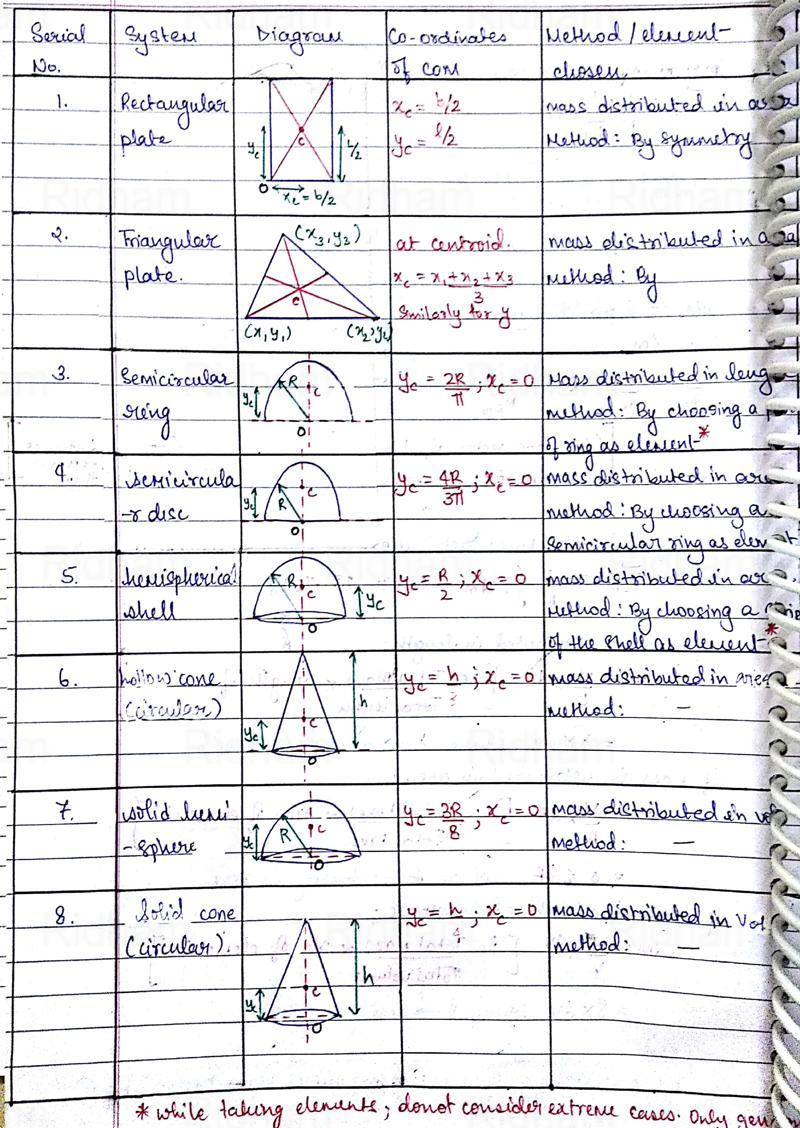 Serial No.
System
Diagram
Co-ordinates of com
Method / element chosen.
1.
Rectangular plate
yc
c
L/2
O
xc = b/2
xc = b/2
yc = l/2
mass distributed in
Method: By symmetry
2.
Triangular plate.
(x3, y3)
c
(x, y1)
(x2, y2
at centroid.
xc = x1 + x2 + x3 / 3
Similarly for y
mass distributed in area
Method: By
3.
Semicircular ring
yc
R
c
O
yc = 2R/π ; xc = 0
Mass distributed in leng
method: By choosing a
of ring as element*
4.
semicircula
-r disc
yc
R
c
O
yc = 4R/3π ; xc = 0
mass distributed in are
method: By choosing a
semicircular ring as elem
5.
hemispherical shell
R
c
yc
O
yc = R/2 ; xc = 0
mass distributed in ar
Method: By choosing a
of the shell as element *
6.
hollow cone
(circular)
yc
c
h
O
yc = h/3 ; xc = 0
mass distributed in area
method: —
7.
solid hemi
-sphere
yc
R
c
O
yc = 3R/8 ; xc = 0
mass distributed in vo
method: —
8.
Solid cone
(circular)
yc
c
h
O
yc = h/4 ; xc = 0
mass distributed in Vol
method: —
* while taking elements; donot consider extreme cases. Only gen
Ridham